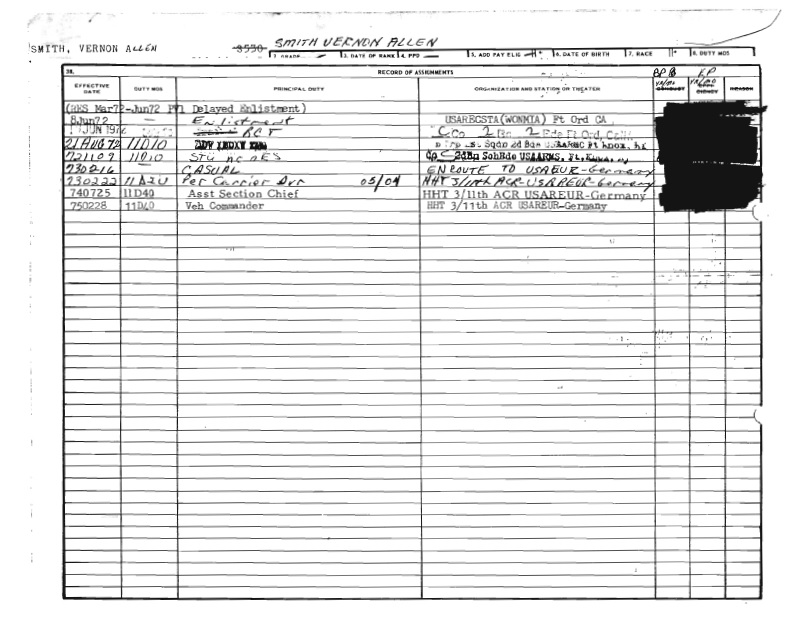 SMITH VERNON ALLEN
SMITH, VERNON ALLEN
3. DATE OF RANK 4. PPD 5. ADD PAY ELIG 6. DATE OF BIRTH 7. RACE 8. DUTY MOS
38. RECORD OF ASSIGNMENTS
EFFECTIVE DATE DUTY MOS PRINCIPAL DUTY ORGANIZATION AND STATION OR THEATER
(RES Mar72-Jun72 Delayed Enlistment)
8Jun72 — Enlistment USAREGSTA(WONMIA) Ft Ord CA
JUN 1972 RCT C Co 2 Bn 2 Bde Ft Ord, Calif,
21AUG72 11D10 Sqdn 2d Bde Ft Knox,
721109 11D10 2dBn SchBde USAARMS, Ft. Knox,
730216 CASUAL ENROUTE TO USAREUR-Germany
730222 Per Carrier Dvr HHT 3/11th ACR-USAREUR-Germany
740725 11D40 Asst Section Chief HHT 3/11th ACR USAREUR-Germany
750228 11D40 Veh Commander HHT 3/11th ACR USAREUR-Germany